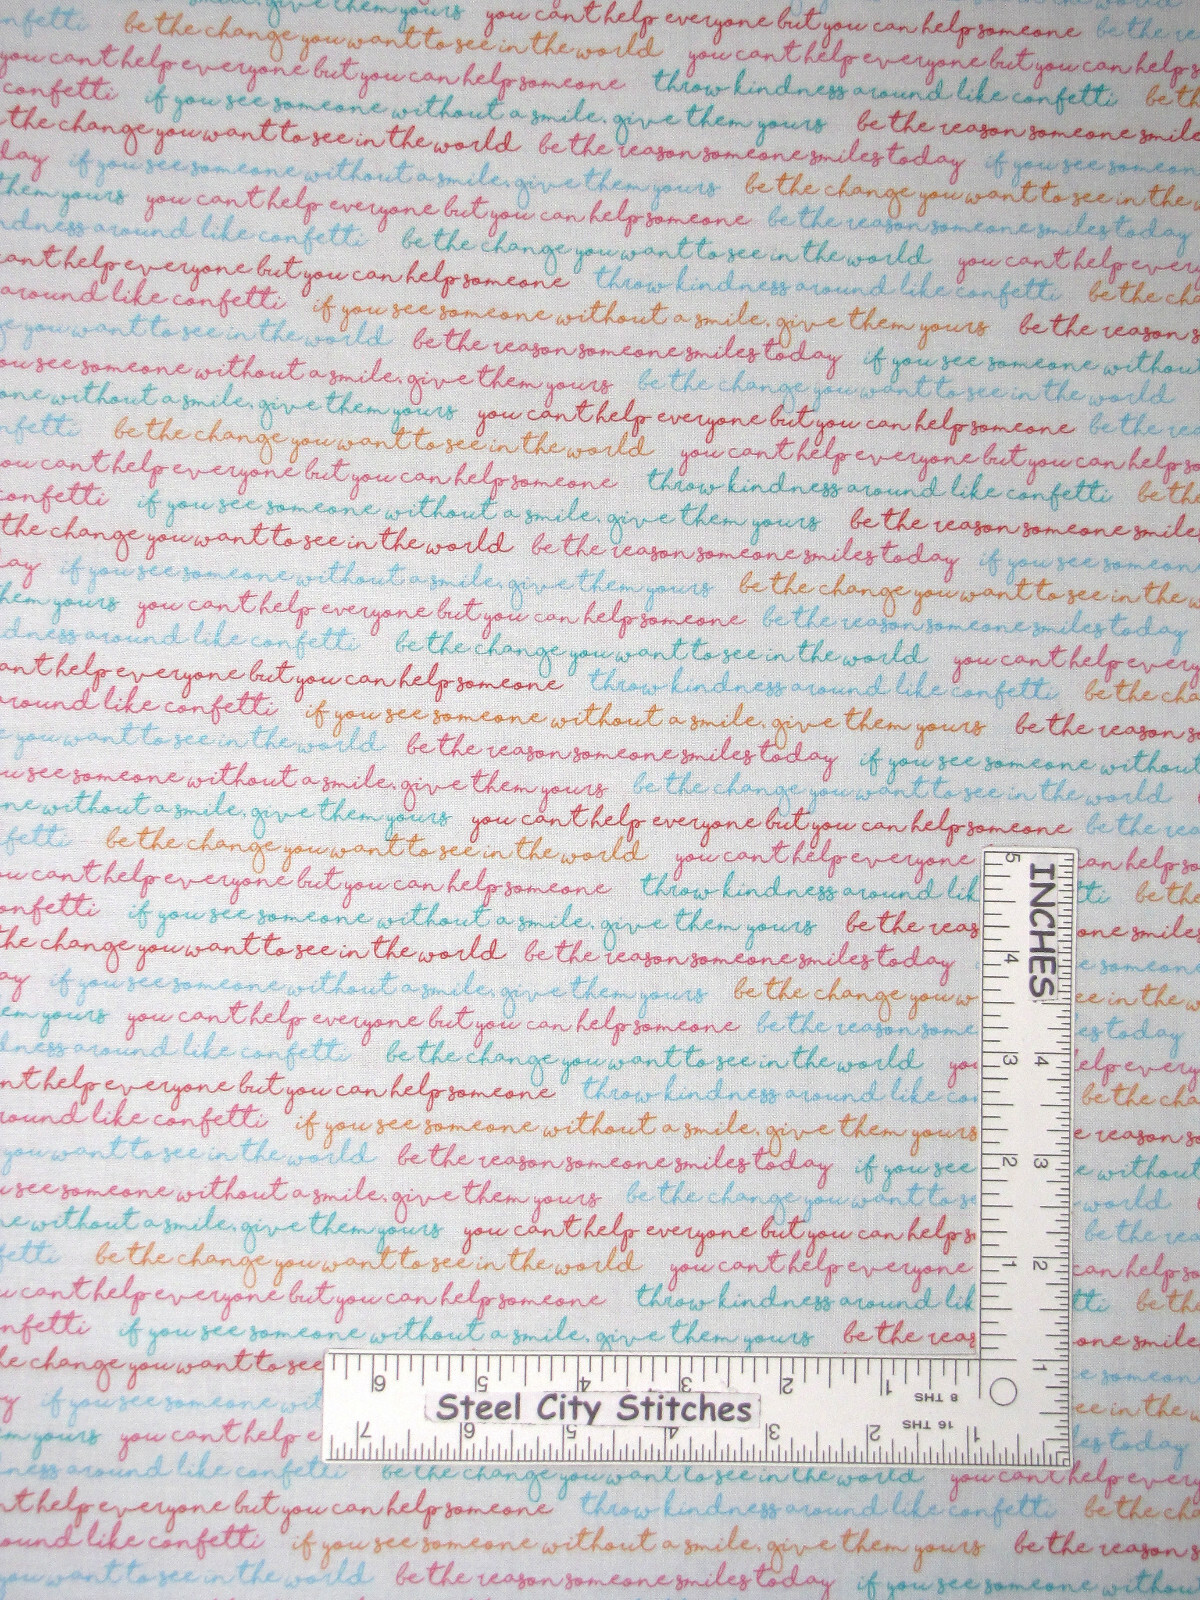 smile, give them yours you can't help everyone but you can help someone be the re
nfetti be the change you want to see in the world you can't help everyone but you can help s
you can't help everyone but you can help someone throw kindness around like confetti be th
confetti if you see someone without a smile, give them yours be the reason someone smile
the change you want to see in the world be the reason someone smiles today if you see someon
day if you see someone without a smile, give them yours be the change you want to see in the w
them yours you can't help everyone but you can help someone be the reason someone smiles today
ndness around like confetti be the change you want to see in the world you can't help every
can't help everyone but you can help someone throw kindness around like confetti be the ch
around like confetti if you see someone without a smile, give them yours be the reason s
e you want to see in the world be the reason someone smiles today if you see someone without
ou see someone without a smile, give them yours be the change you want to see in the world
one without a smile, give them yours you can't help everyone but you can help someone be the rea
nfetti be the change you want to see in the world you can't help everyone but you can help so
ou can't help everyone but you can help someone throw kindness around like confetti be the
confetti if you see someone without a smile, give them yours be the reason someone smiles
the change you want to see in the world be the reason someone smiles today if you see someon
ay if you see someone without a smile, give them yours be the change you want to see in the w
hem yours you can't help everyone but you can help someone be the reason someone smiles today
dness around like confetti be the change you want to see in the world you can't help every
an't help everyone but you can help someone throw kindness around like confetti be the cha
around like confetti if you see someone without a smile, give them yours be the reason so
e you want to see in the world be the reason someone smiles today if you see someone without
u see someone without a smile, give them yours be the change you want to see in the world
ne without a smile, give them yours you can't help everyone but you can help someone be the rea
fetti be the change you want to see in the world you can't help everyone can help so
ou can't help everyone but you can help someone throw kindness around lik tti be the
onfetti if you see someone without a smile, give them yours be the reas one smiles
the change you want to see in the world be the reason someone smiles today e someon
ay if you see someone without a smile, give them yours be the change you w ee in the w
em yours you can't help everyone but you can help someone be the reason some les today
dness around like confetti be the change you want to see in the world you help every
n't help everyone but you can help someone throw kindness around like con be the cha
round like confetti if you see someone without a smile, give them yours e reason so
you want to see in the world be the reason someone smiles today if you see e without
u see someone without a smile, give them yours be the change you want to se world
ne without a smile, give them yours you can't help everyone but you can help s be the rea
fetti be the change you want to see in the world you can't help everyone can help so
u can't help everyone but you can help someone throw kindness around lik tti be the
nfetti if you see someone without a smile, give them yours be the reas one smile
he change you want to see e someon
y if you see someone wit ee in the w
m yours you can't help e les today
ness around like confetti be the change you want to see in the world you can't help every
n't help everyone but you can help someone throw kindness around like confetti be the cha
ound like confetti if you see someone without a smile, give them yours be the reason s
you want to see in the world be the reason someone smiles today if you see someone without
INCHES
5
4
3 4
2 3
1 2
1
6 5 4 3 2 1 8 THS
Steel City Stitches
7 6 5 4 3 2 16 THS 1